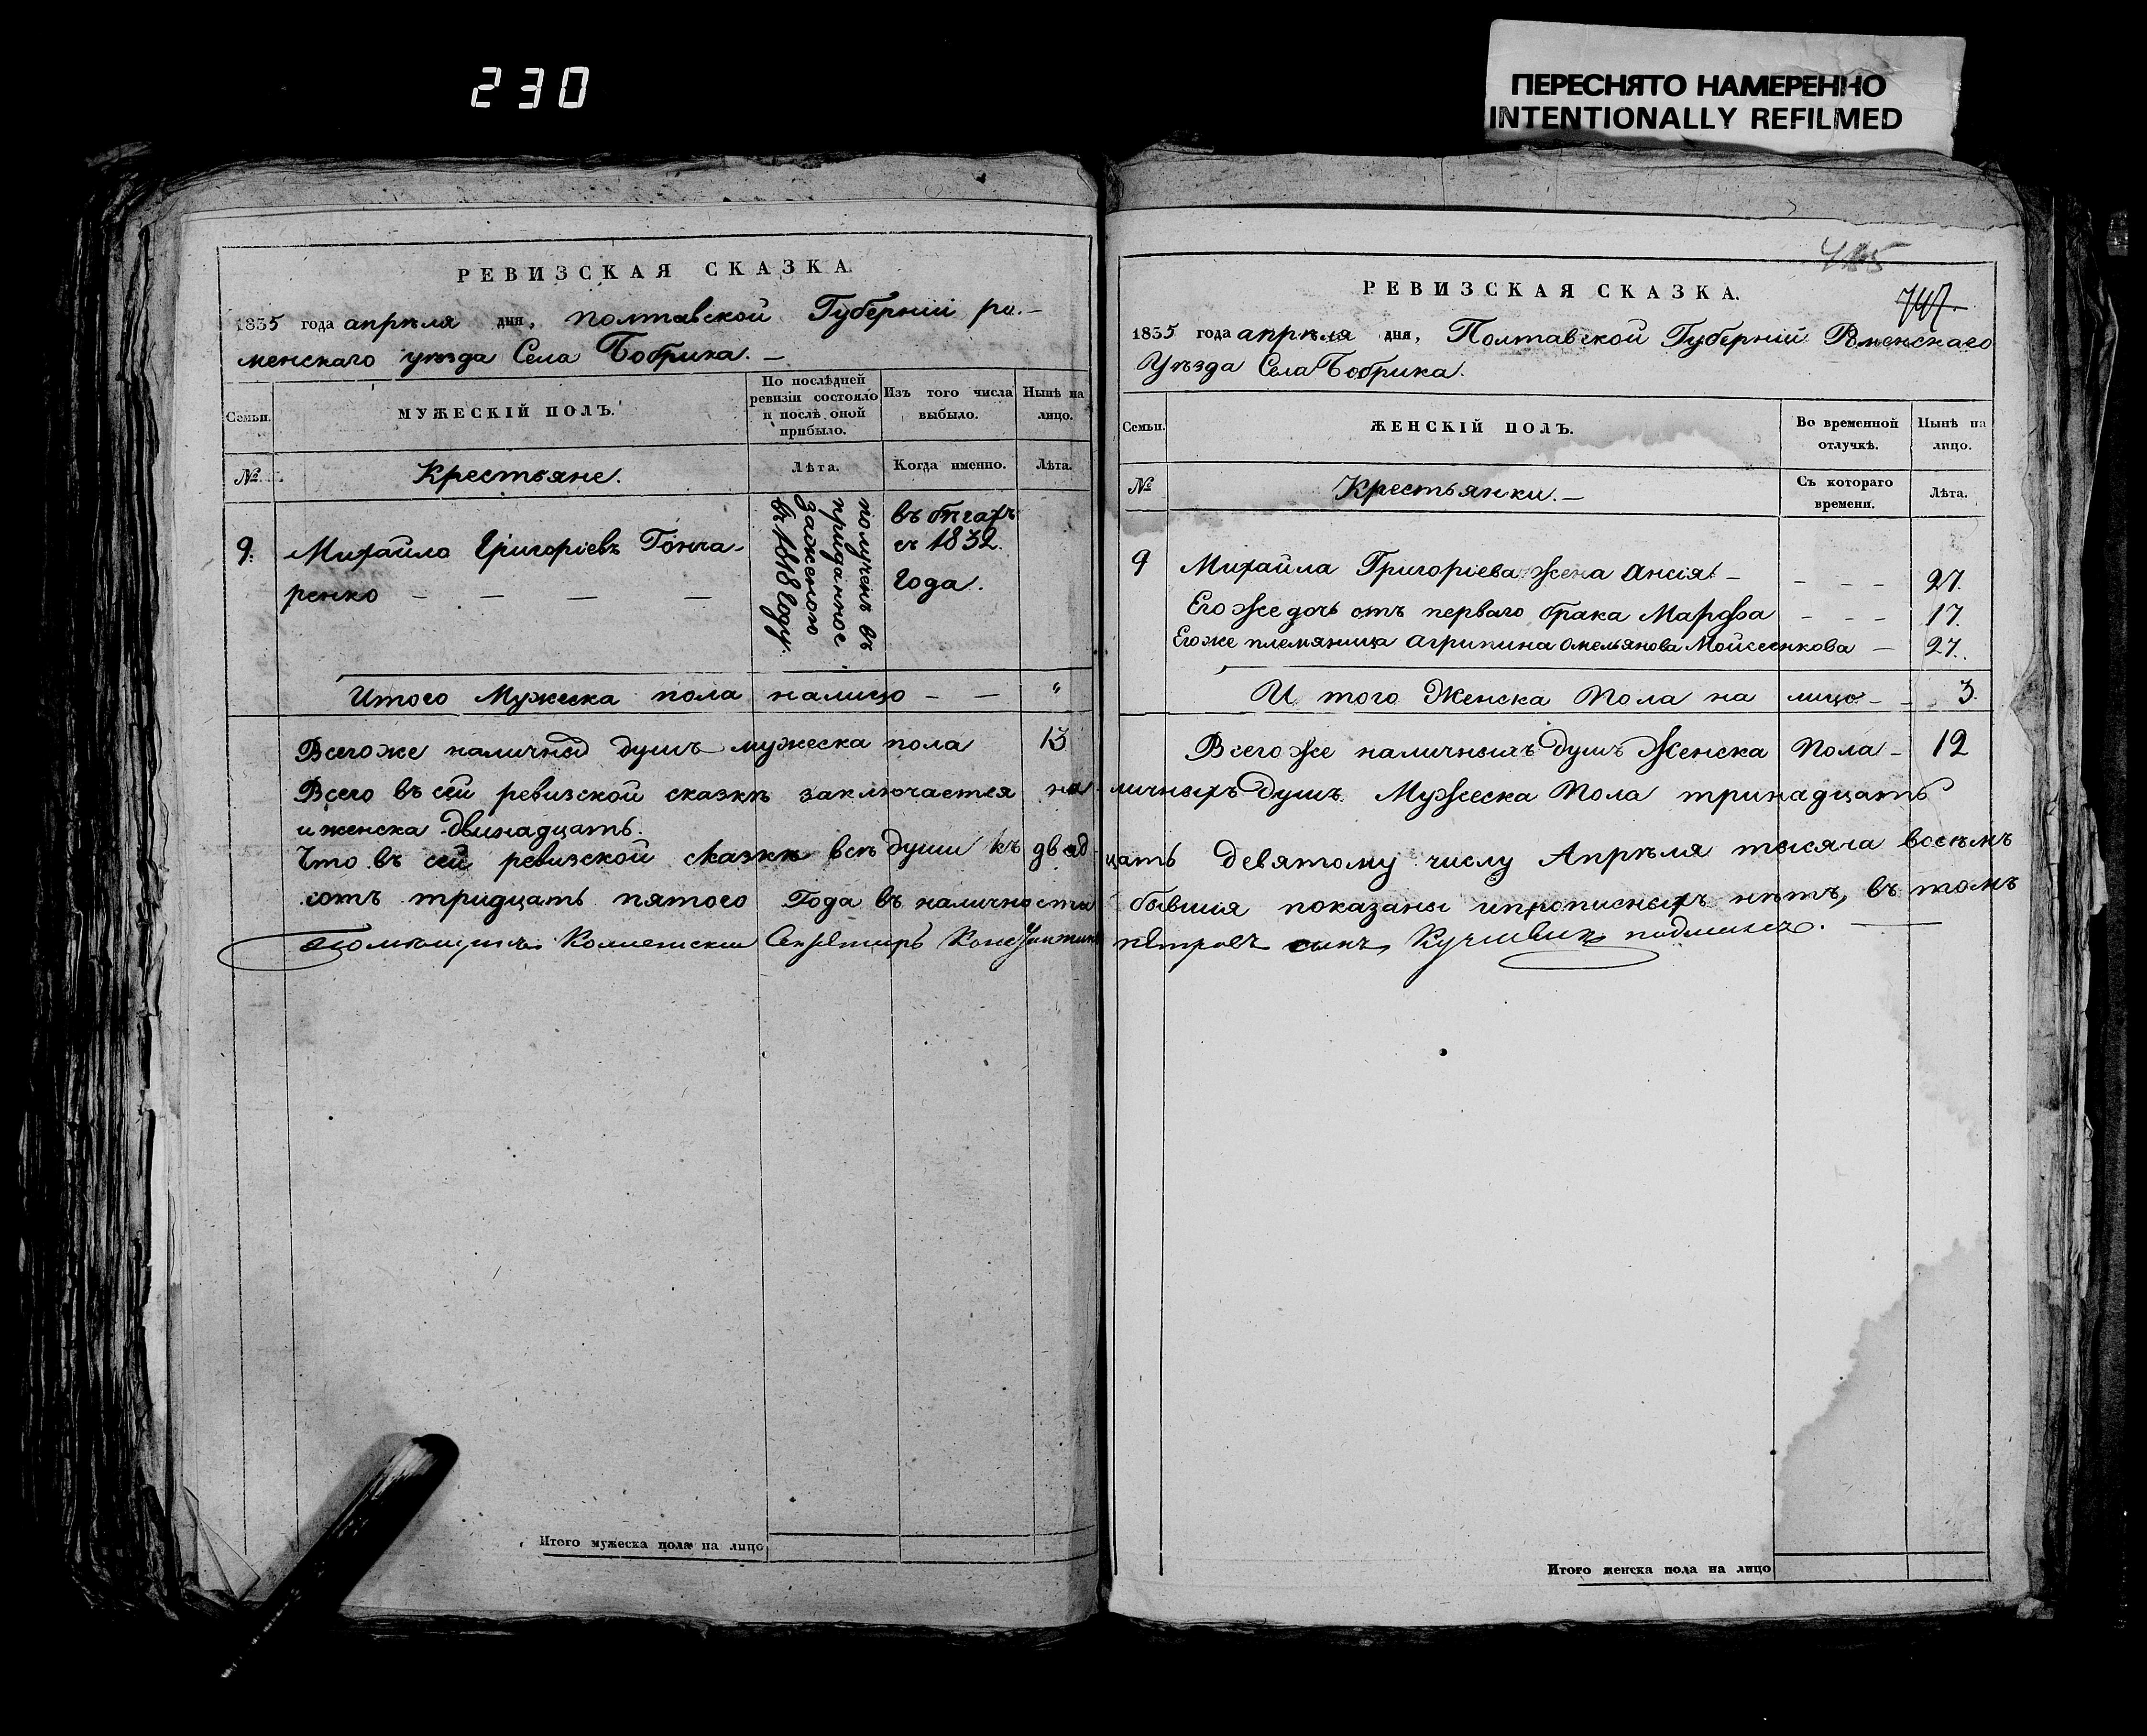 230
ПЕРЕСНЯТО НАМЕРЕННО
INTENTIONALLY REFILMED
РЕВИЗСКАЯ СКАЗКА.
1835 года апрѣля дня, Полтавской Губерніи ро-
менскаго уѣзда Села Бобрика. —
Семьи.
МУЖЕСКІЙ ПОЛЪ.
По послѣдней
ревизіи состояло
и послѣ оной
прибыло.
Изъ того числа
выбыло.
Нынѣ на
лицо.
№
Крестьяне.
Лѣта.
Когда именно.
Лѣта.
9. Михайло Григоріевъ Гонча-
ренко — — — —
полученъ въ
приданное
заженою
въ 1818 году.
въ бѣгахъ
съ 1832
года.
Итого Мужеска пола налицо — — "
Всегоже наличный душъ мужеска пола 13
Всего въ сей ревизской сказкѣ заключается на-
и женска двинадцать.
Что въ сей ревизской сказкѣ всѣ души къ двад-
сотъ тридцать пятого Года въ наличности
Итого мужеска пола на лицо
415
747
РЕВИЗСКАЯ СКАЗКА.
1835 года апрѣля дня, Полтавской Губерніи Роменскаго
Уѣзда Села Бобрика.
Семьи.
ЖЕНСКІЙ ПОЛЪ.
Во временной
отлучкѣ.
Нынѣ на
лицо.
№
Крестьянки. —
Съ котораго
времени.
Лѣта.
9 Михайла Григоріева жена Ансія — — — — 27.
Его же дочь отъ перваго брака Марфа — — — 17.
Егоже племяница Агрипина Омельянова Мойсеенкова — 27.
И того Женска Пола на лицо — — 3.
Всего же наличныхъ душъ Женска Пола — 12
личныхъ душъ Мужеска Пола тринадцать
цать девятому числу Апрѣля тысяча восѣмъ
бывшия показаны ипрописныхъ нѣтъ, въ томъ
Петровъ сынъ
Итого женска пола на лицо